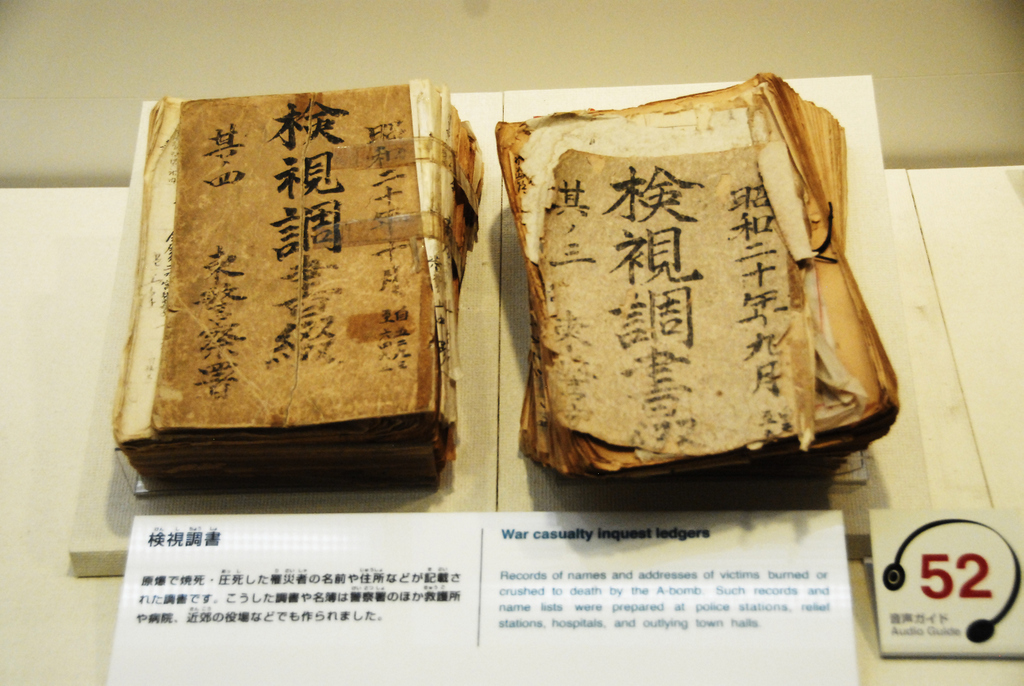 昭和二十年十月
検視調書綴
其ノ四 東警察署
昭和二十年九月
検視調書
其ノ三 東
検視調書
原爆で焼死・圧死した罹災者の名前や住所などが記載さ
れた調書です。こうした調書や名簿は警察署のほか救護所
や病院、近郊の役場などでも作られました。
War casualty inquest ledgers
Records of names and addresses of victims burned or
crushed to death by the A-bomb. Such records and
name lists were prepared at police stations, relief
stations, hospitals, and outlying town halls.
52
音声ガイド
Audio Guide